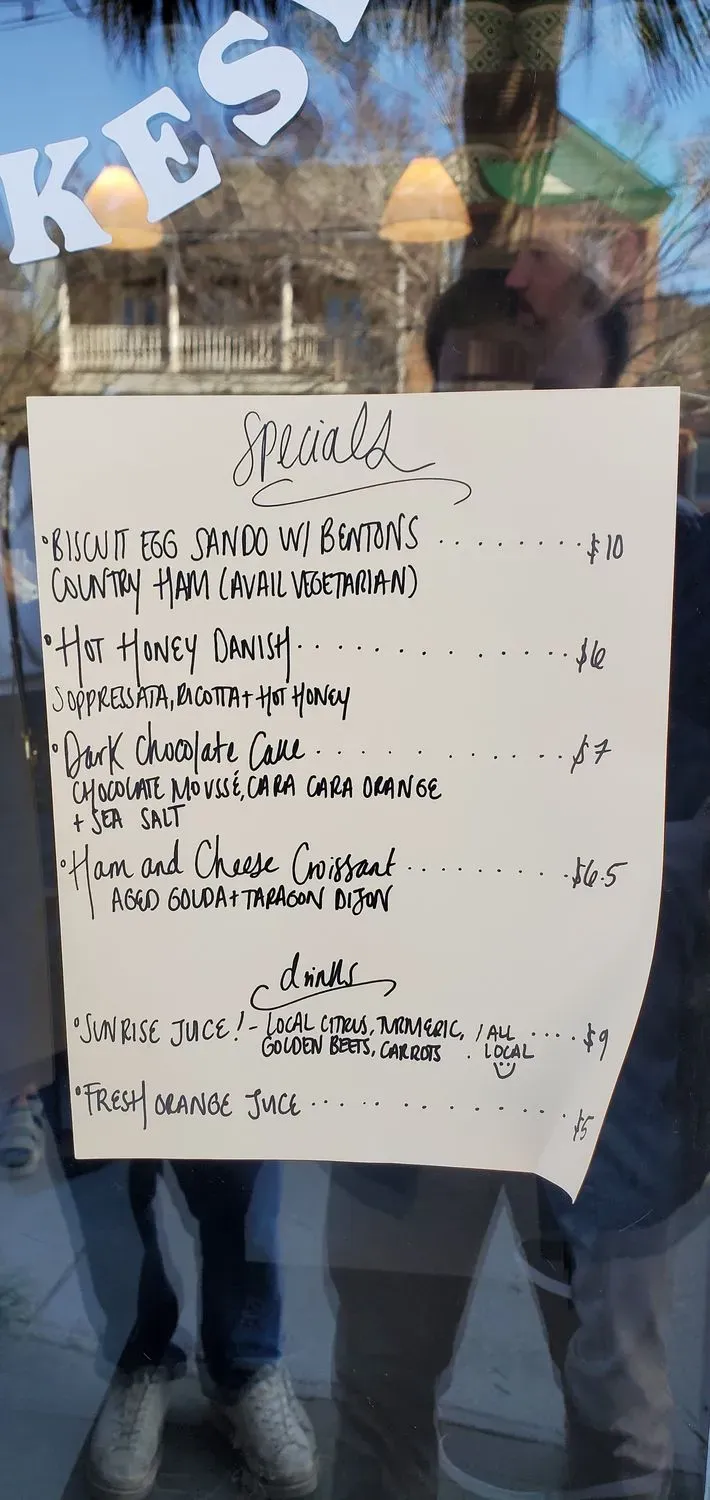 KES
Specials
•BISCUIT EGG SANDO W/ BENTONS ........ $10
COUNTRY HAM (AVAIL VEGETARIAN)
•HOT HONEY DANISH ............ $6
SOPPRESSATA, RICOTTA + HOT HONEY
•Dark Chocolate Cake ........... $7
CHOCOLATE MOUSSÉ, CARA CARA ORANGE
+ SEA SALT
•Ham and Cheese Croissant ......... $6.5
AGED GOUDA + TARAGON DIJON
drinks
•SUNRISE JUCE! - LOCAL CITRUS, TURMERIC, / ALL .... $9
GOLDEN BEETS, CARROTS . LOCAL
•FRESH ORANGE JUCE ............ $5